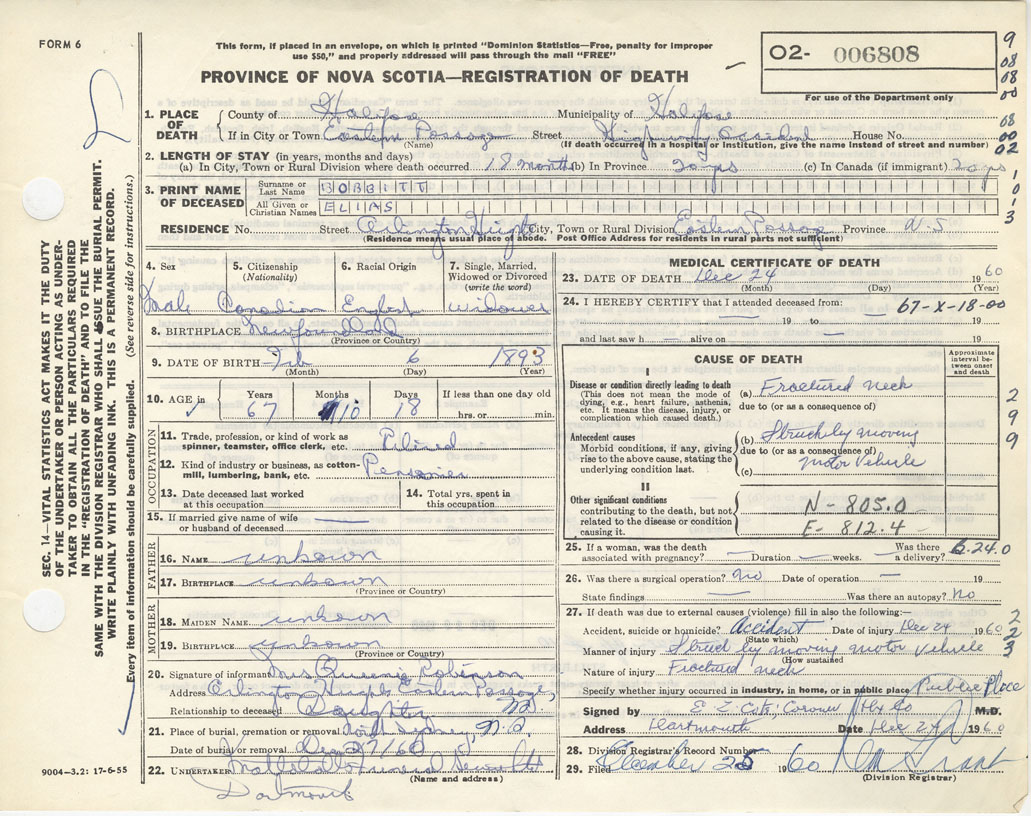 FORM 6
This form, if placed in an envelope, on which is printed "Dominion Statistics—Free, penalty for improper
use $50," and properly addressed will pass through the mail "FREE"
PROVINCE OF NOVA SCOTIA—REGISTRATION OF DEATH
O2- 006808
For use of the Department only
9
08
08
00
08
00
02
1
0
1
3
2
9
9
2
2
3
1. PLACE OF DEATH
County of Halifax Municipality of Halifax
If in City or Town Eastern Passage Street Highway Accident House No.
(Name) (If death occurred in a hospital or institution, give the name instead of street and number)
2. LENGTH OF STAY (in years, months and days)
(a) In City, Town or Rural Division where death occurred 18 months (b) In Province 20 yrs (c) In Canada (if immigrant) 20 yrs
3. PRINT NAME OF DECEASED
Surname or Last Name BOBBITT
All Given or Christian Names ELIAS
RESIDENCE No. Street Arlington Heights City, Town or Rural Division Eastern Passage Province N.S
(Residence means usual place of abode. Post Office Address for residents in rural parts not sufficient)
4. Sex 5. Citizenship (Nationality) 6. Racial Origin 7. Single, Married, Widowed or Divorced (write the word)
Male Canadian English widower
8. BIRTHPLACE Newfoundland
(Province or Country)
9. DATE OF BIRTH Feb 6 1893
(Month) (Day) (Year)
10. AGE in Years Months Days If less than one day old
67 10 18 hrs. or min.
OCCUPATION
11. Trade, profession, or kind of work as spinner, teamster, office clerk, etc. Retired
12. Kind of industry or business, as cotton-mill, lumbering, bank, etc. Pensioner
13. Date deceased last worked at this occupation
14. Total yrs. spent in this occupation
15. If married give name of wife or husband of deceased —
FATHER
16. NAME unknown
17. BIRTHPLACE unknown
(Province or Country)
MOTHER
18. MAIDEN NAME unknown
19. BIRTHPLACE unknown
(Province or Country)
20. Signature of informant Mrs Queenie Robinson
Address Arlington Heights Eastern Passage,
Relationship to deceased Daughter NS
21. Place of burial, cremation or removal North Sydney, N.S.
Date of burial or removal Dec 27/60
22. UNDERTAKER Funeral Service Ltd
(Name and address)
Dartmouth
MEDICAL CERTIFICATE OF DEATH
23. DATE OF DEATH Dec 24 1960
(Month) (Day) (Year)
24. I HEREBY CERTIFY that I attended deceased from: 67-X-18-00
— 19 to — 19
and last saw h — alive on — 19
CAUSE OF DEATH
Approximate interval between onset and death
I
Disease or condition directly leading to death
(This does not mean the mode of dying, e.g., heart failure, asthenia, etc. It means the disease, injury, or complication which caused death.)
(a) Fractured neck
due to (or as a consequence of)
Antecedent causes
Morbid conditions, if any, giving rise to the above cause, stating the underlying condition last.
(b) Struck by moving
due to (or as a consequence of)
(c) Motor Vehicle
II
Other significant conditions contributing to the death, but not related to the disease or condition causing it.
N - 805.0
E - 812.4
25. If a woman, was the death associated with pregnancy? — Duration — weeks. Was there a delivery? —
24.0
26. Was there a surgical operation? No Date of operation — 19
State findings — Was there an autopsy? No
27. If death was due to external causes (violence) fill in also the following:—
Accident, suicide or homicide? Accident Date of injury Dec 24 1960
(State which)
Manner of injury Struck by moving motor vehicle
(How sustained)
Nature of injury Fractured neck
Specify whether injury occurred in industry, in home, or in public place Public Place
Signed by Coroner Hx Co M.D.
Address Dartmouth Date Dec 24 1960
28. Division Registrar's Record Number
29. Filed December 25 1960 Grant
(Division Registrar)
SEC. 14—VITAL STATISTICS ACT MAKES IT THE DUTY
OF THE UNDERTAKER OR PERSON ACTING AS UNDER-
TAKER TO OBTAIN ALL THE PARTICULARS REQUIRED
IN THE "REGISTRATION OF DEATH" AND TO FILE THE
SAME WITH THE DIVISION REGISTRAR WHO SHALL ISSUE THE BURIAL PERMIT.
WRITE PLAINLY WITH UNFADING INK. THIS IS A PERMANENT RECORD.
Every item of information should be carefully supplied. (See reverse side for instructions.)
9004-3.2: 17-6-55